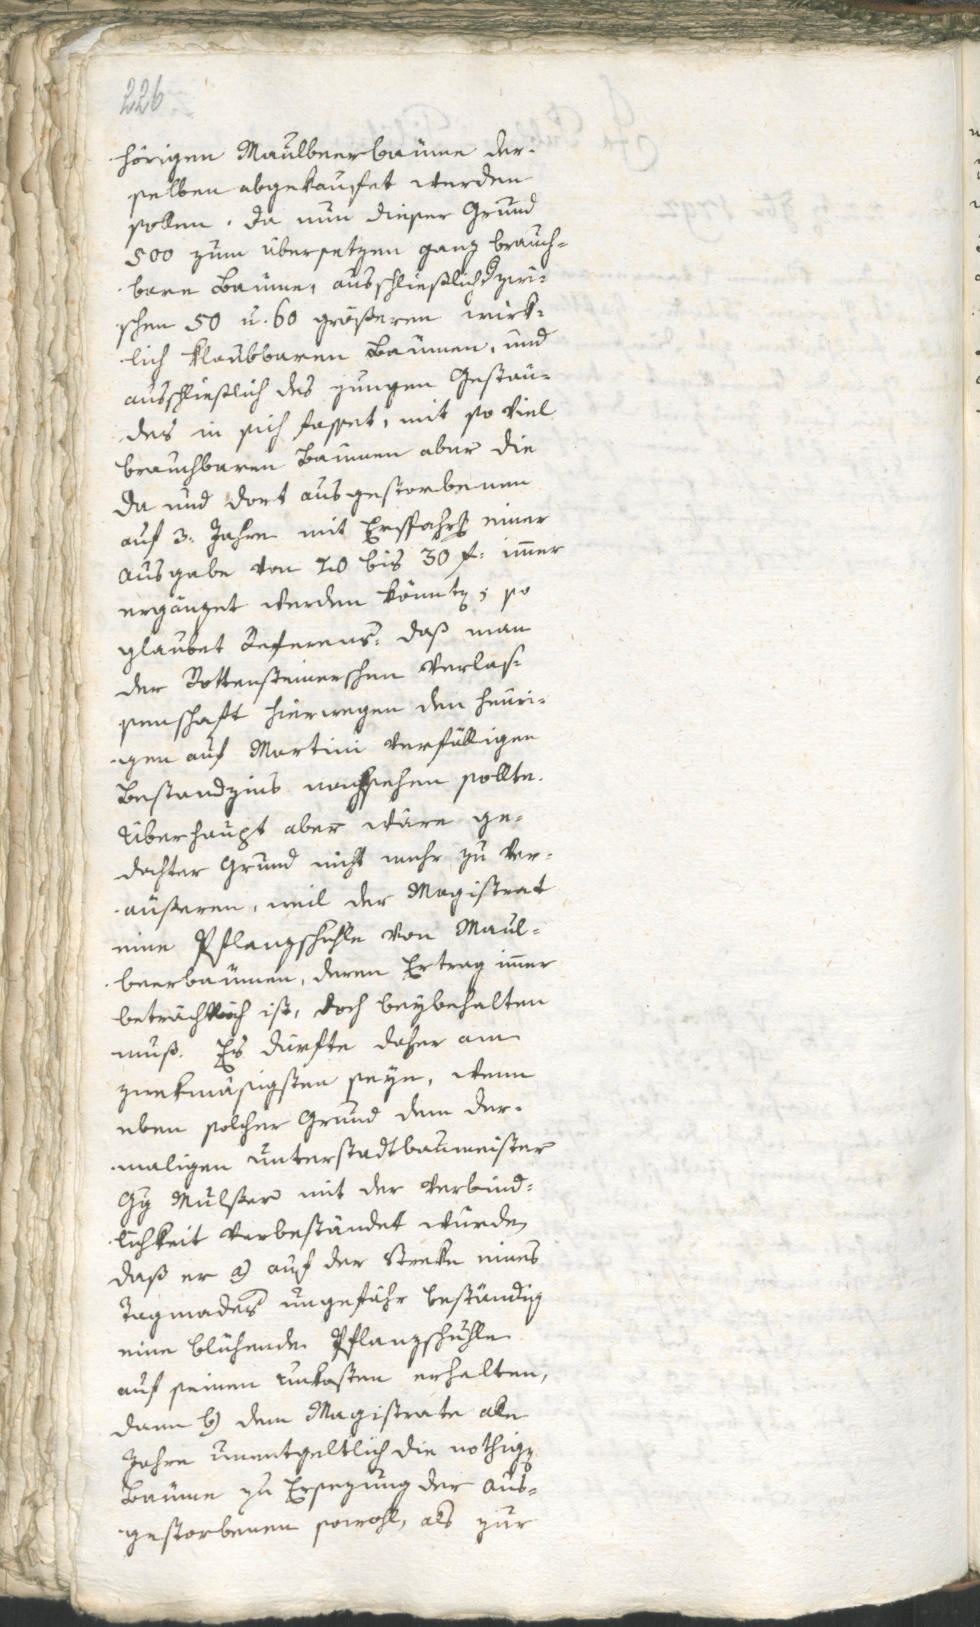 226
hörigen Maulbeerbaüme der-
selben abgekaufet werden
sollen. Da nun dieser Grund
500 zum übersetzen ganz brauch-
bare Baüme, ausschließlich zwi-
schen 50 u. 60 größeren wirk-
lich klaubbaren Baümen, und
ausschließlich des jungen Gestau-
des in sich fasset, mit so viel
brauchbaren Baümen aber die
da und dort ausgestorbenen
auf 3. Jahre mit einer
Ausgabe von 20 bis 30 f: immer
ergänzet werden könnte; so
glaubet Referens: daß man
der Rottensteinerschen Verlas-
senschaft hierwegen den heuri-
gen auf Martini verfälligen
Bestandzins nachsehen sollte.
Überhaupt aber wäre ge-
dachter Grund nicht mehr zu ver-
äußeren, weil der Magistrat
eine Pflanzschule von Maul-
beerbaümen, deren Ertrag immer
beträchtlich ist, doch beybehalten
muß. Es dürfte daher am
zwekmäsigsten seyn, wenn
eben solcher Grund dem der-
maligen Unterstadtbaumeister
Gg Mulser mit der Verbind-
lichkeit verbeständet würde,
daß er a) auf der Streke eines
Tagmades ungefähr beständig
eine blühende Pflanzschulle
auf seinen Unkosten erhalten,
dann b) dem Magistrate alle
Jahre unentgeltlich die nothige
Baüme zu Ersezung der aus-
gestorbenen sowohl, als zur